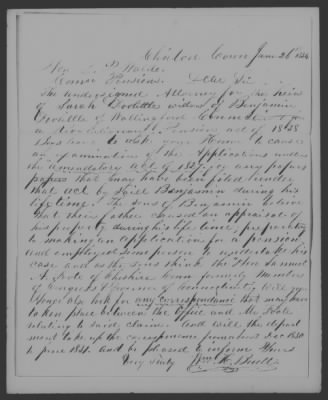 Clinton Conn June 26th 1854
Hon L P Waldo
Comr Pensions Dear Sir
The undersigned Attorney for the heirs
of Sarah Doolittle widow of Benjamin
Doolittle of Wallingford Connect for
a Revolutionary Pension act of 1838
your Honor to cause
an examination of the applications under
the amendatory act of 1827 or any papers
papers that may have been filed under
that act by said Benjamin during his
life time. The sons of Benjamin believe
that their father caused an appraisal of
his property during his life time, preparatory
to making an application for a pension
and employed some person to undertake his
case and as the sons think the Hon
of Cheshire Conn formerly Member
of Congress & Governor of Connecticut Will your
Honor also look for any correspondence that may have
taken place between the Office and Mr
relating to said claim. And will the depart
ment take up the correspondence from about Dec 1850
to June 1851. And be pleased to inform Yours
Very truly Wm H Buell